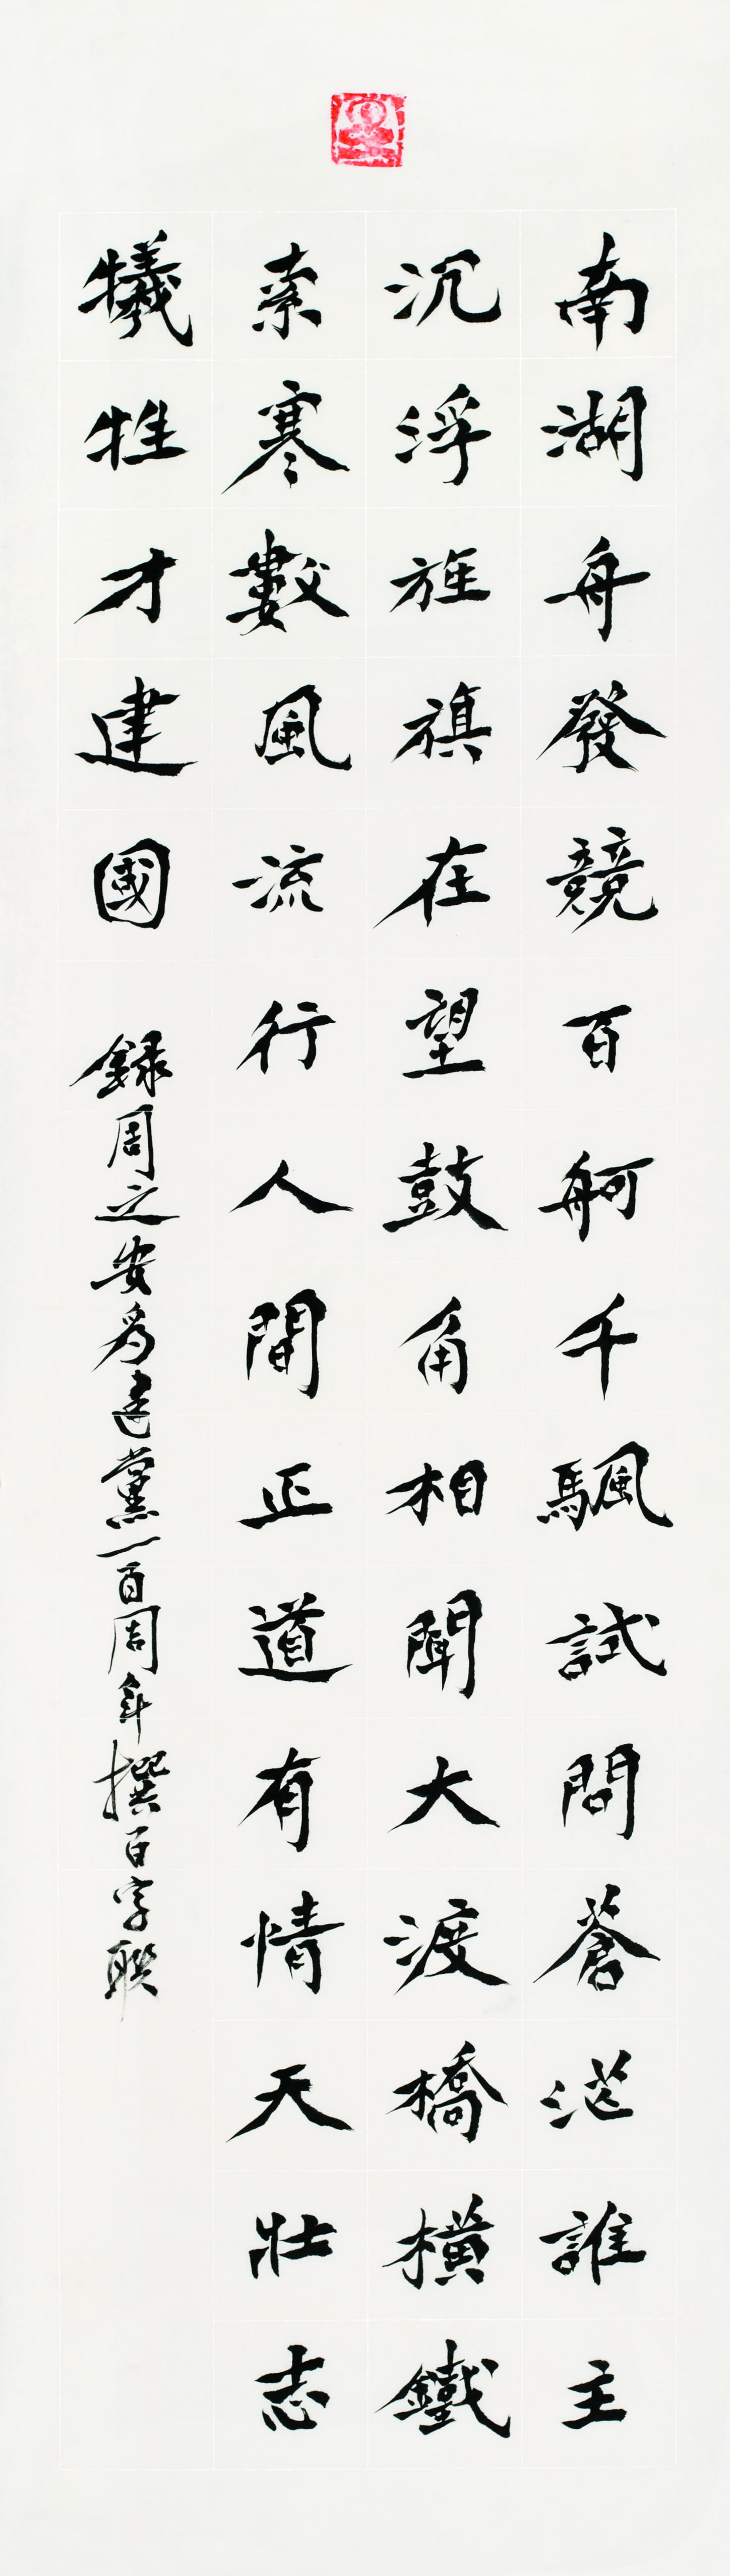 南湖舟發競百舸千颿試問蒼茫誰主
沉浮旌旗在望鼓角相聞大渡橋橫鐵
索寒數風流行人間正道有情天壯志
犧牲才建國
錄周之安為建黨一百周年撰百字聯